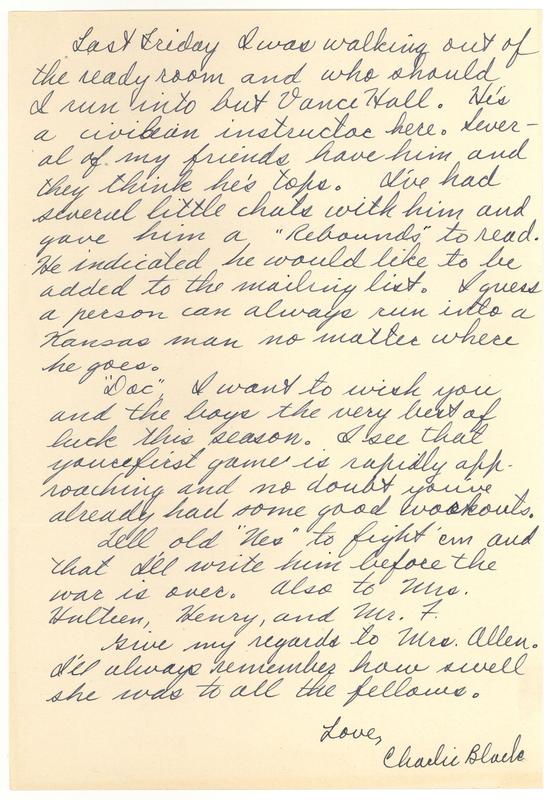 Last Friday I was walking out of
the ready room and who should
I run into but Vance Hall. He's
a civilian instructor here. Sever-
al of my friends have him and
they think he's tops. I've had
several little chats with him and
gave him a "Rebounds" to read.
He indicated he would like to be
added to the mailing list. I guess
a person can always run into a
Kansas man no matter where
he goes.
"Doc", I want to wish you
and the boys the very best of
luck this season. I see that
your first game is rapidly app-
roaching and no doubt you've
already had some good workouts.
Tell old "Nes" to fight 'em and
that I'll write him before the
war is over. Also to Mrs.
Hulteen, Henry, and Mr. F.
Give my regards to Mrs. Allen.
I'll always remember how swell
she was to all the fellows.
Love,
Charlie Black